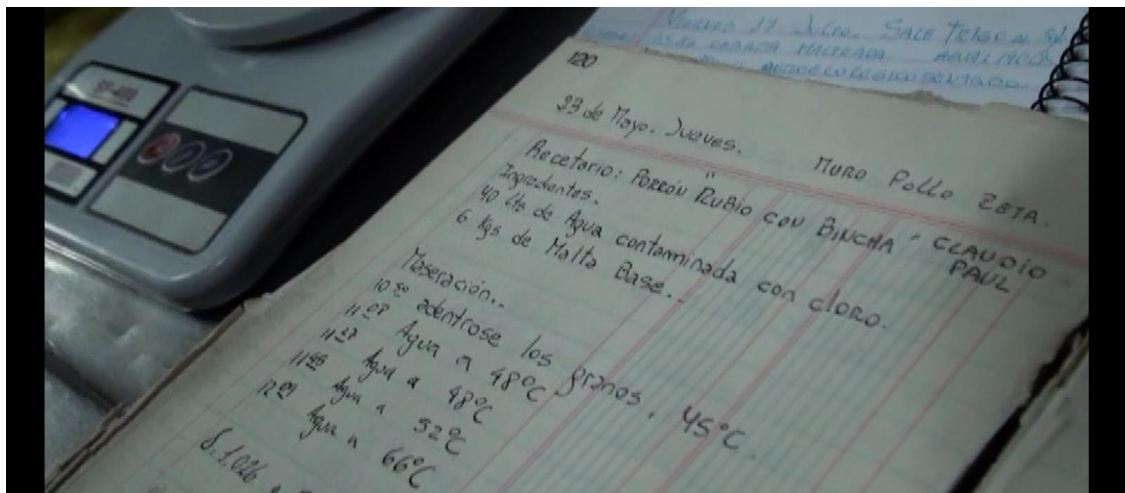 SALE TRIGO AL
CEBADA MALTEADA
120
23 de Mayo. Jueves.
MURO POLLO ZETA.
Recetario: "PORRÓN RUBIO CON BINCHA" CLAUDIO
PAUL
Ingredientes.
40 Lts de Agua contaminada con cloro.
6 Kgs de Malta Base..
Maseración..
10 00 adentrose los granos. 45°C.
11 07 Agua a 48°C
11 27 Agua a 48°C
11 45 Agua a 52°C
12 01 Agua a 66°C